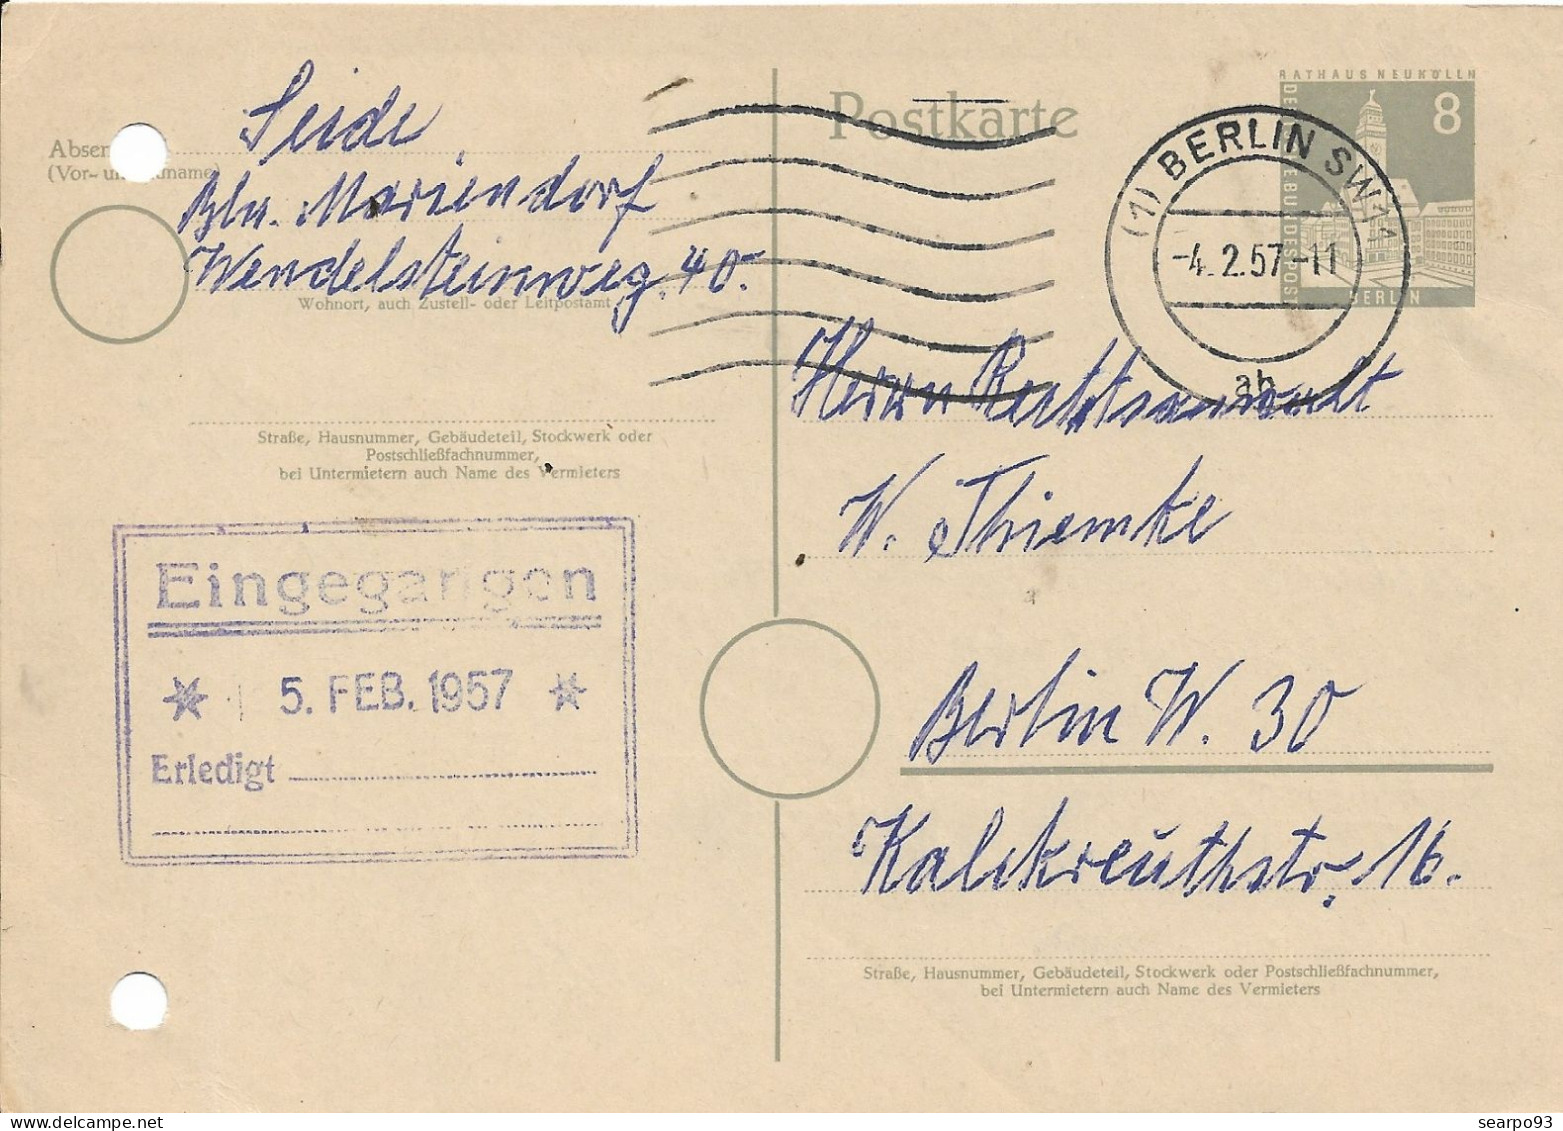 Seidl
Bln. Mariendorf
Wendelsteinweg. 40.
Wohnort, auch Zustell- oder Leitpostamt
Straße, Hausnummer, Gebäudeteil, Stockwerk oder
Postschließfachnummer,
bei Untermietern auch Name des Vermieters
Eingegangen
5. FEB. 1957
Erledigt
Postkarte
RATHAUS NEUKÖLLN
8
DEUTSCHE BUNDESPOST
BERLIN
(1) BERLIN SW 11
-4. 2. 57 -11
ab
Herrn Rechtsanwalt
W. Thiemke
Berlin W. 30
Kalckreuthstr. 16.
Straße, Hausnummer, Gebäudeteil, Stockwerk oder Postschließfachnummer,
bei Untermietern auch Name des Vermieters
searpo93